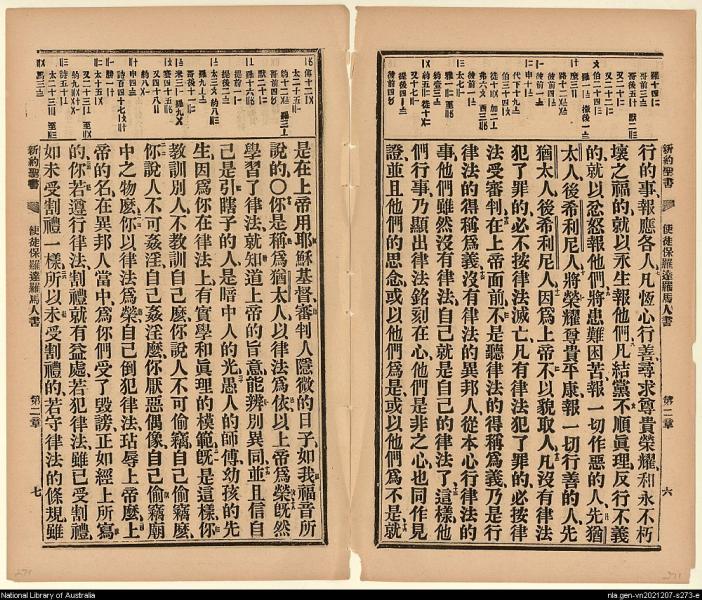 新約聖書
使徒保羅達羅馬人書
第二章
六
行的事報應各人凡恆心行善尋求尊貴榮耀和永不朽
壞之福的就以永生報他們凡結黨不順眞理反行不義
的就以忿怒報他們將患難困苦報一切作惡的人先猶
太人後希利尼人將榮耀尊貴平康報一切行善的人先
猶太人後希利尼人因爲上帝不以貌取人凡沒有律法
犯了罪的必不按律法滅亡凡有律法犯了罪的必按律
法受審判在上帝面前不是聽律法的得稱爲義乃是行
律法的得稱爲義沒有律法的異邦人從本心行律法的
事他們雖然沒有律法自己就是自己的律法了這樣他
們行事乃顯出律法銘刻在心他們是非之心也同作見
證並且他們的思念或以他們爲是或以他們爲不是就
是在上帝用耶穌基督審判人隱微的日子如我福音所
說的〇你是稱爲猶太人以律法爲依以上帝爲榮旣然
學習了律法就知道上帝的旨意能辨別異同並且信自
己是引瞎子的人是暗中人的光愚人的師傅幼孩的先
生因爲你在律法上有實學和眞理的模範旣是這樣你
教訓別人不教訓自己麽你說人不可偷竊自己偷竊麽
你說人不可姦淫自己姦淫麽你厭惡偶像自己偷竊廟
中之物麽你以律法爲榮自己倒犯律法玷辱上帝麽上
帝的名在異邦人當中爲你們受了毀謗正如經上所寫
的你若遵行律法割禮就有益處若犯律法雖已受割禮
如未受割禮一樣所以未受割禮的若守律法的條規雖
新約聖書
使徒保羅達羅馬人書
第二章
七
National Library of Australia
nla.gen-vn2021207-s273-e